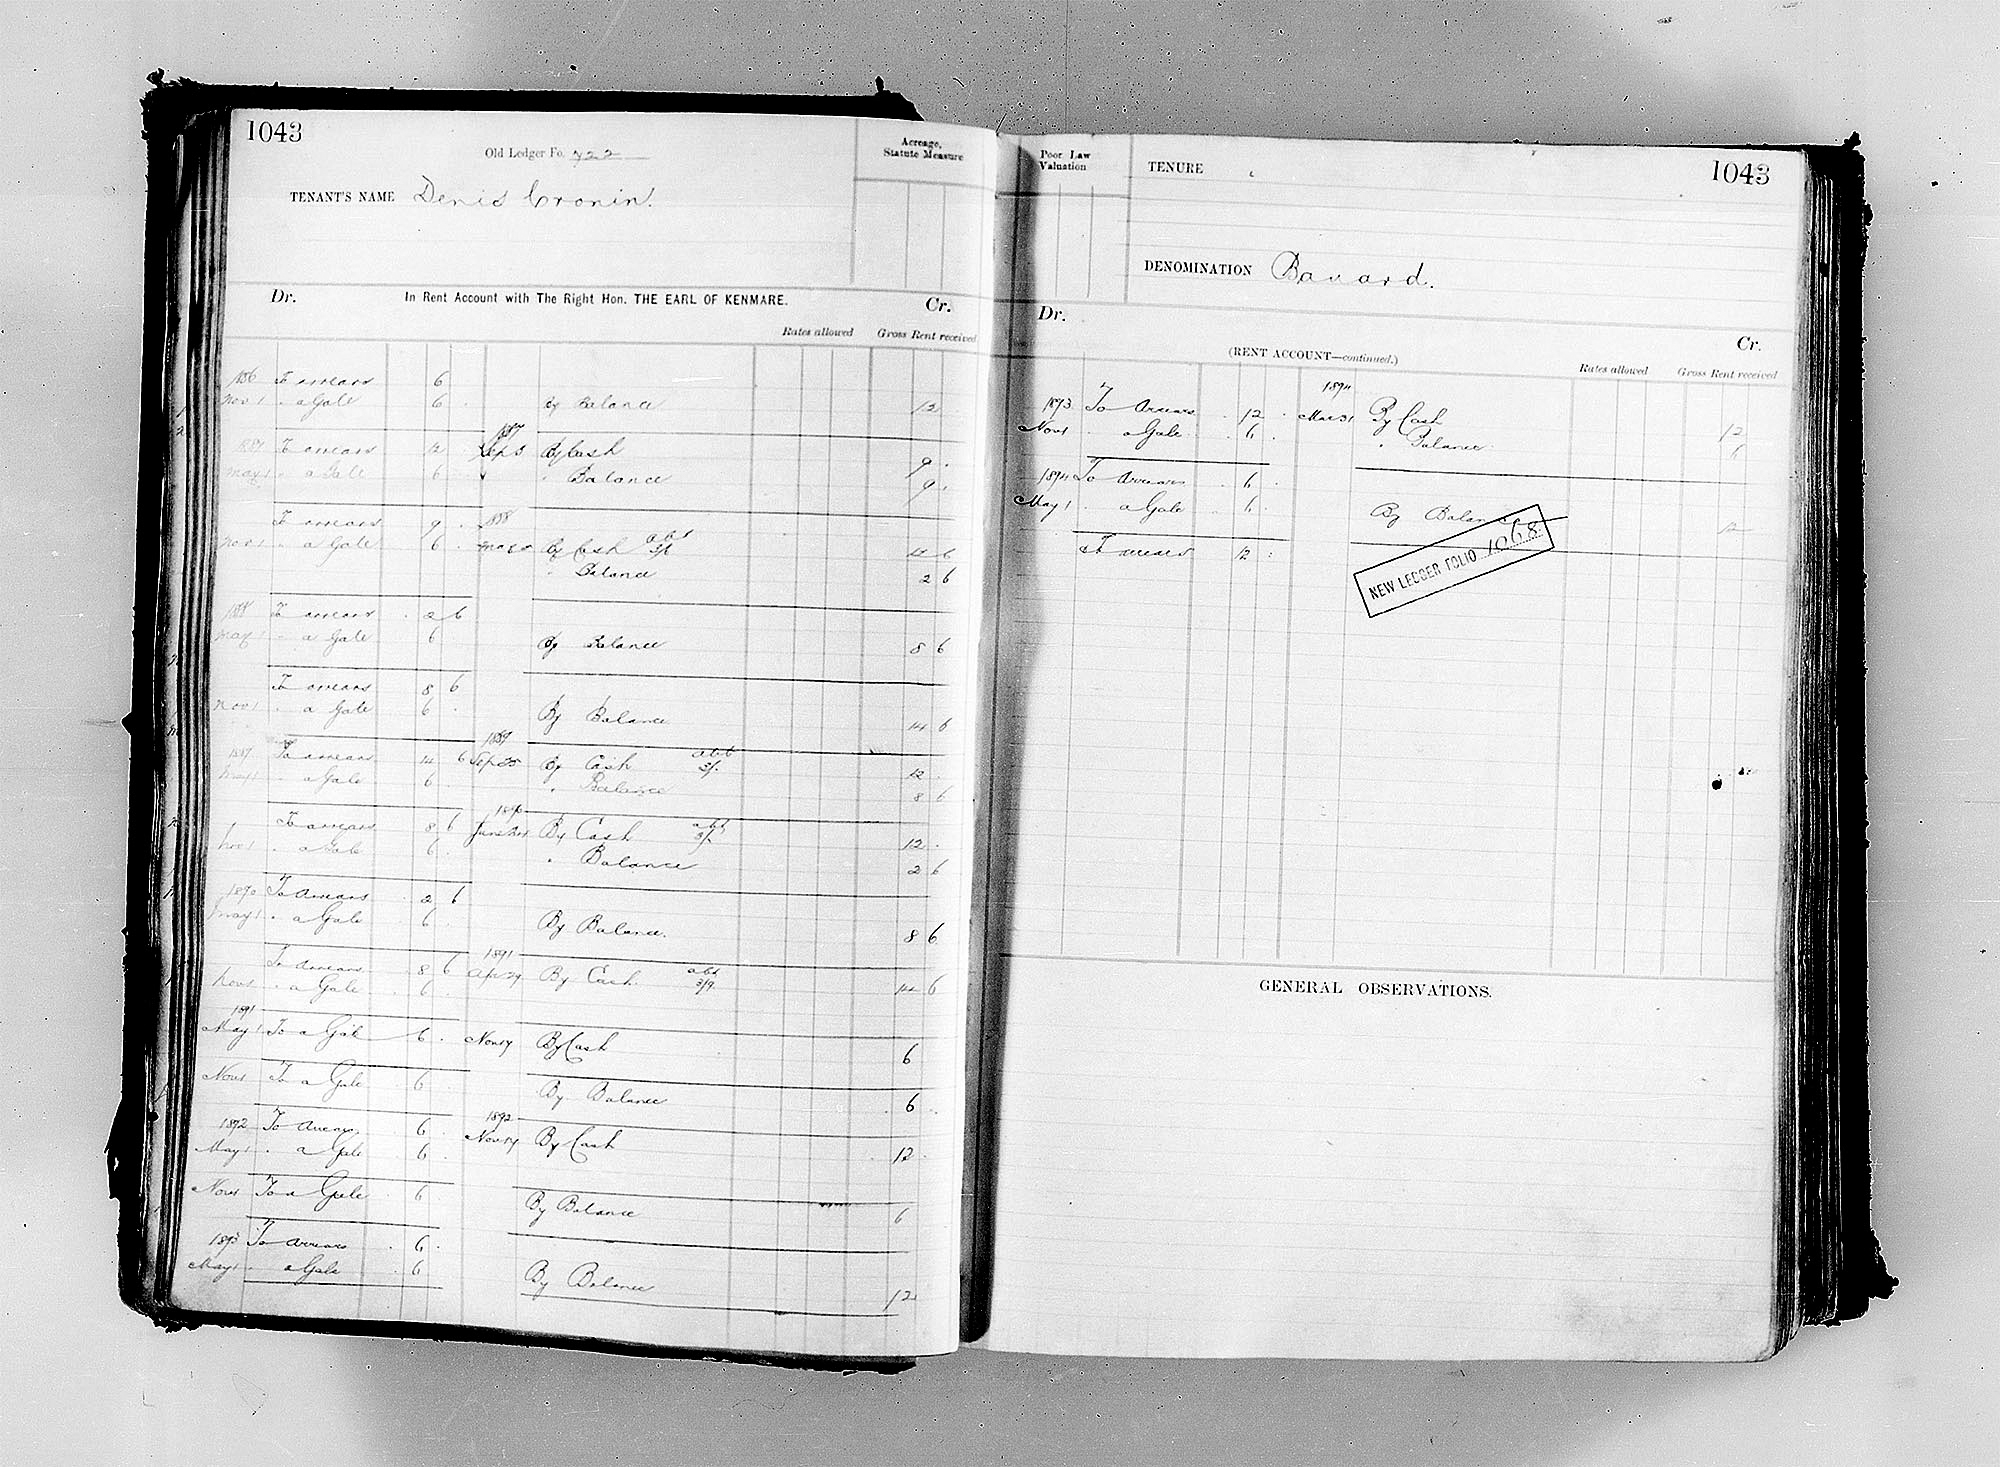 1043
Old Ledger Fo. 722
Acreage,
Statute Measure
TENANT'S NAME Denis Cronin.
Dr. In Rent Account with The Right Hon. THE EARL OF KENMARE. Cr.
Rates allowed Gross Rent received
1886 To arrears 6
Nov 1 " a Gale 6 . By Balance 12
1887
1887 To arrears 12 . Sep 3 By Cash 9 .
May 1 " a Gale 6 " Balance 9 .
To arrears 9 . 1888
Nov 1 " a Gale 6 . By Cash abt 3/6 12 6
" Balance 2 6
1888 To arrears . 2 6
May 1 " a Gale 6 By Balance 8 6
To arrears 8 6
Nov 1 " a Gale 6 . By Balance 14 6
1889
To arrears 14 6 Sep 25 By Cash abt 3/. 12 .
May 1 " a Gale 6 " Balance 8 6
1890
To arrears 8 6 June 24 By Cash abt 12 .
Nov 1 " a Gale 6 . " Balance 2 6
1890 To Arrears . 2 6
May 1 " a Gale 6 By Balance. 8 6
1891
To Arrears 8 6 Apr 29 By Cash abt 3/9 14 6
Nov 1 " a Gale . 6 .
1891
May 1 To a Gale 6 . Nov 17 By Cash 6
Nov 1 To a Gale . 6 . By Balance . 6 .
1892
1892 To Arrears 6 . Nov 14 By Cash 12 .
May 1 " a Gale . 6 .
Nov 1 To a Gale . 6 By Balance 6
1893 To Arrears . 6 .
May 1 " a Gale . 6 By Balance 12
Poor Law
Valuation
TENURE
1043
DENOMINATION Banard.
Dr. Cr.
(RENT ACCOUNT—continued.)
Rates allowed Gross Rent received
1894
1893 To Arrears . 12 . Mar 31 By Cash 12
Nov 1 " a Gale . 6 . " Balance 6
1894 To Arrears . 6 .
May 1 " a Gale . 6 . By Balance 12
To arrears 12 :
NEW LEDGER FOLIO 1068
GENERAL OBSERVATIONS.